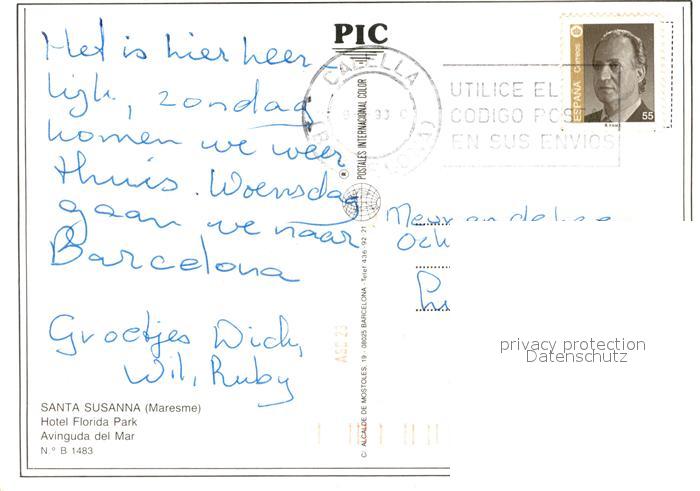 Het is hier heer-
lijk, zondag
komen we weer
thuis. Woensdag
gaan we naar
Barcelona
Groetjes Dick,
Wil, Ruby
SANTA SUSANNA (Maresme)
Hotel Florida Park
Avinguda del Mar
N.° B 1483
PIC
® POSTALES INTERNACIONAL COLOR
C/ ALCALDE DE MOSTOLES, 19 - 08025 BARCELONA - Telef. 436 92 21
CALELLA
93
UTILICE EL
CODIGO POS
EN SUS ENVIOS
ESPAÑA Correos
55
privacy protection
Datenschutz